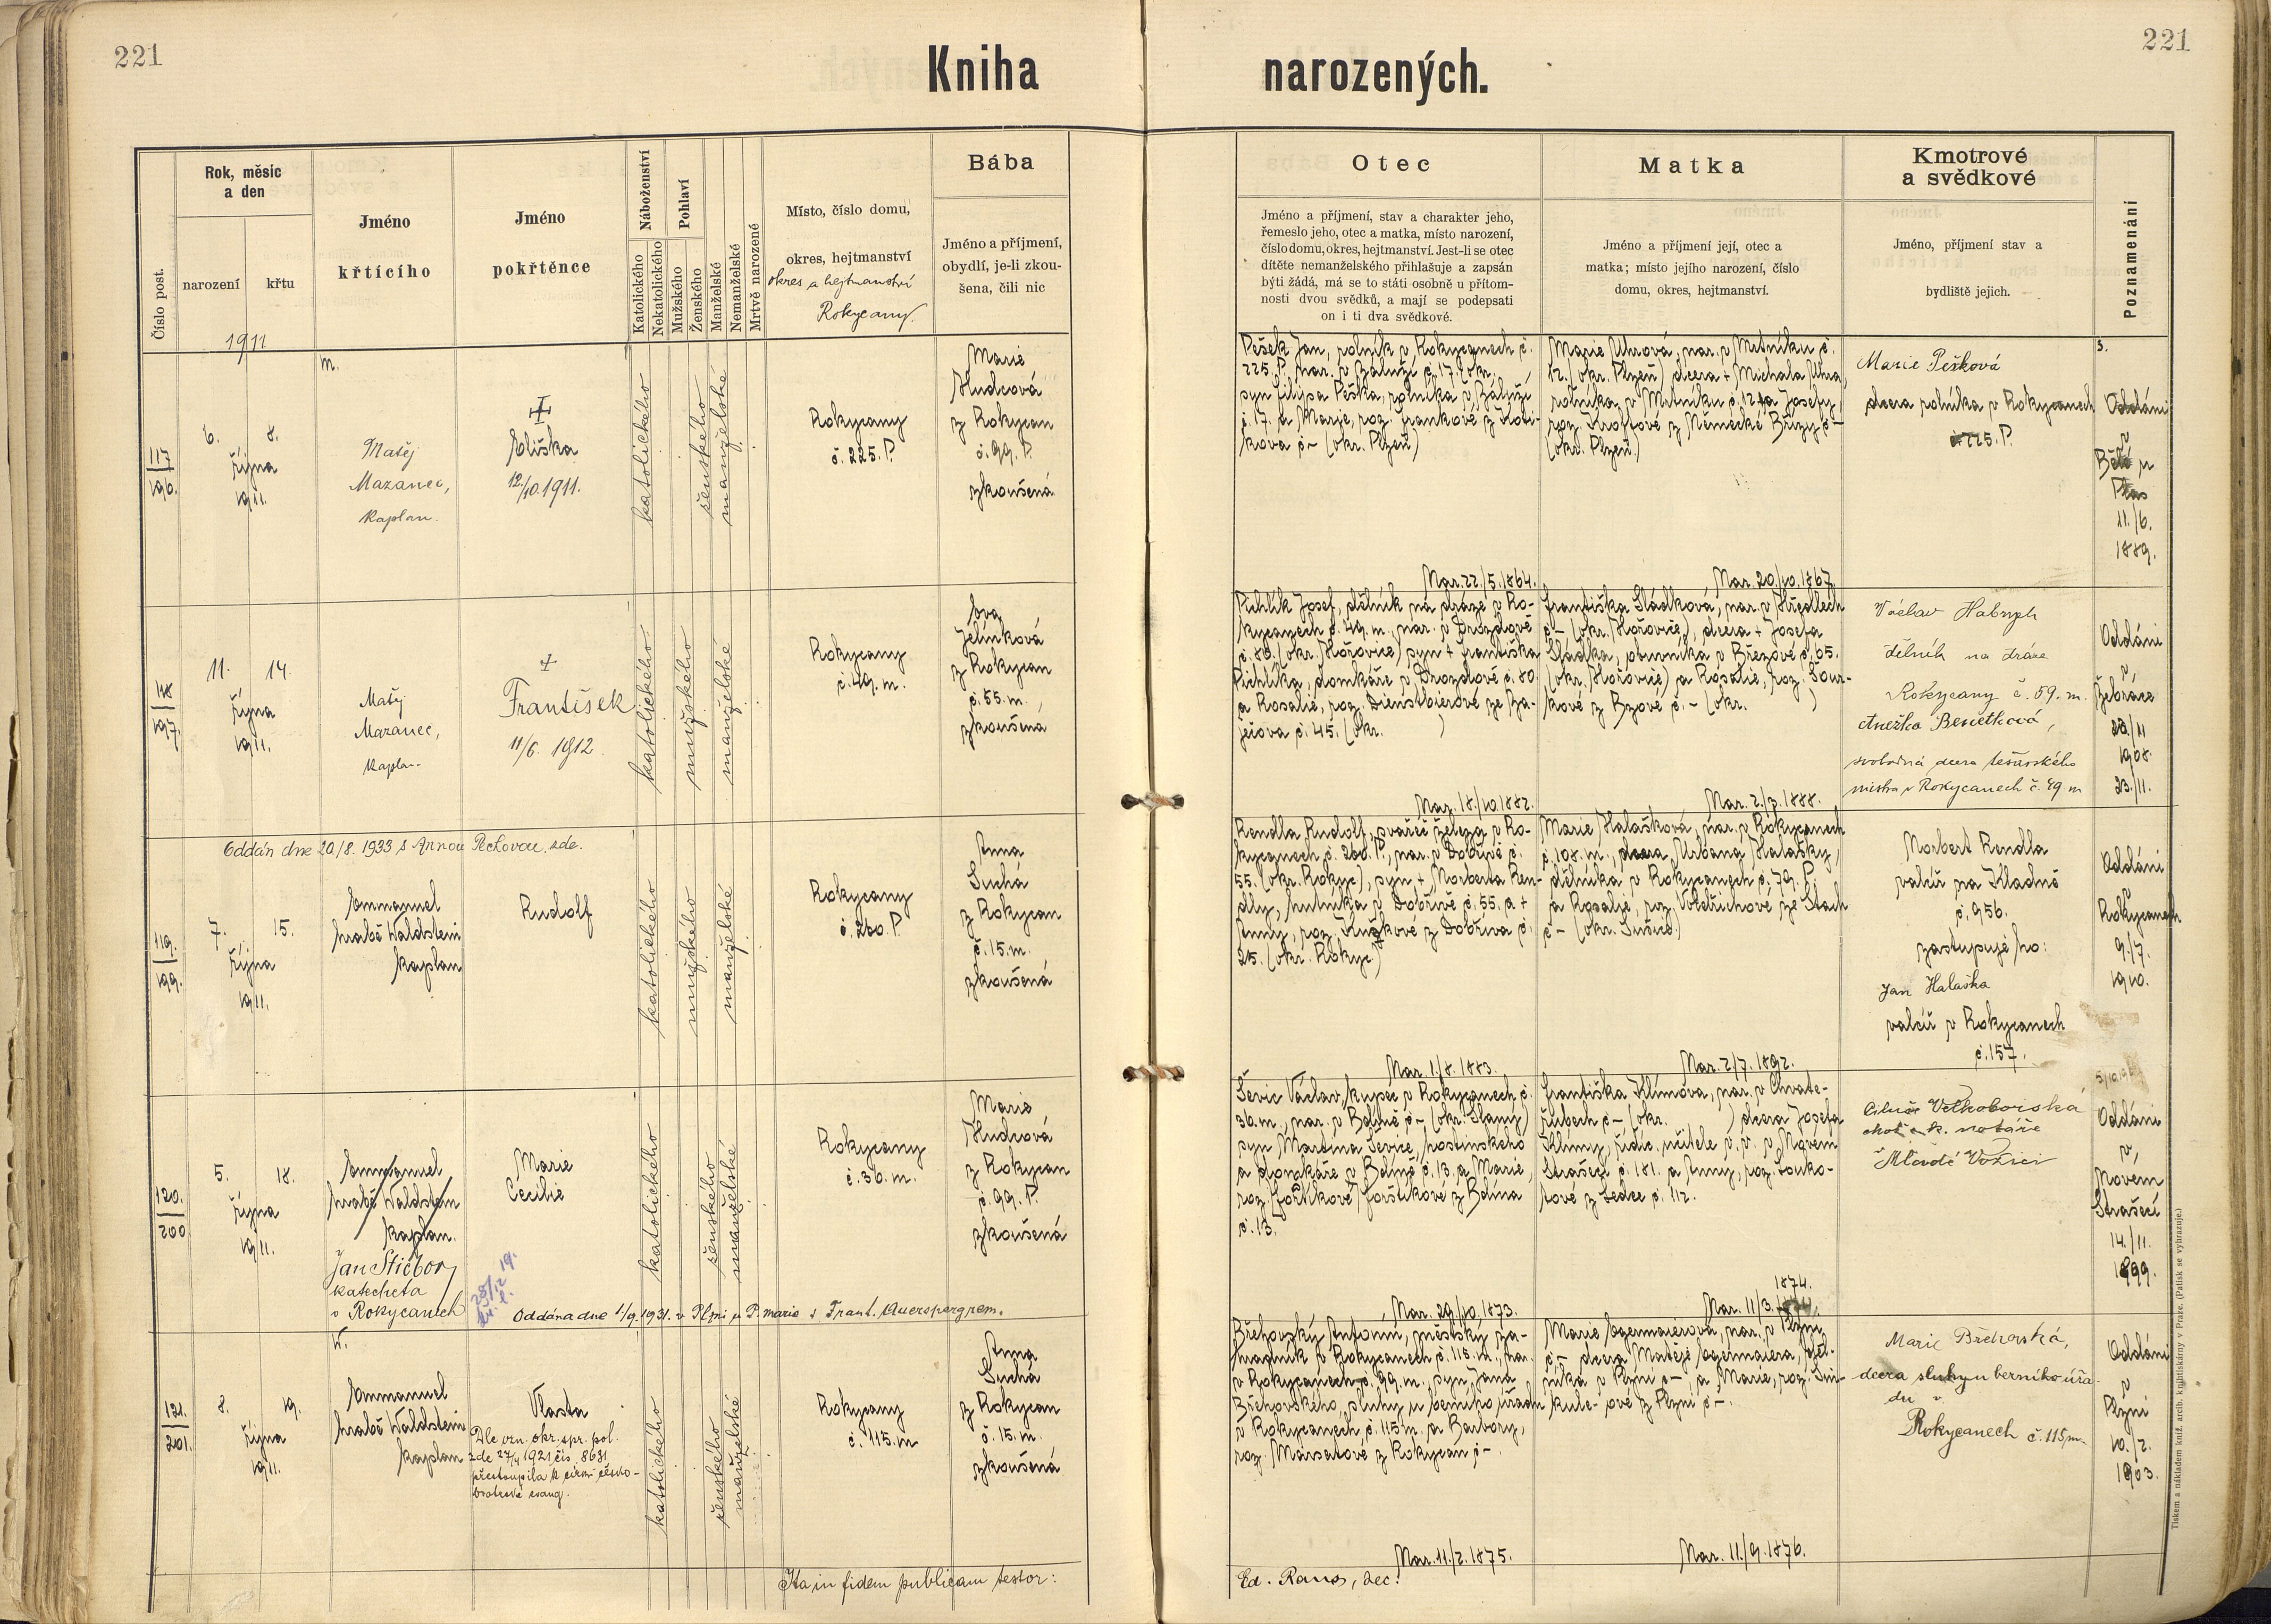 221
Kniha
narozených.
221
Číslo post.
Rok, měsíc
a den
narození
křtu
1911
Jméno
křtícího
Jméno
pokřtěnce
Náboženství
Katolického
Nekatolického
Pohlaví
Mužského
Ženského
Manželské
Nemanželské
Mrtvě narozené
Místo, číslo domu,
okres, hejtmanství
okres a hejtmanství
Rokycany.
Bába
Jméno a příjmení,
obydlí, je-li zkou-
šena, čili nic
Otec
Jméno a příjmení, stav a charakter jeho,
řemeslo jeho, otec a matka, místo narození,
číslo domu, okres, hejtmanství. Jest-li se otec
dítěte nemanželského přihlašuje a zapsán
býti žádá, má se to státi osobně u přítom-
nosti dvou svědků, a mají se podepsati
on i ti dva svědkové.
Matka
Jméno a příjmení její, otec a
matka; místo jejího narození, číslo
domu, okres, hejtmanství.
Kmotrové
a svědkové
Jméno, příjmení stav a
bydliště jejich.
Poznamenání
117
196.
6.
8.
října
1911.
m.
Matěj
Mazanec,
kaplan.
Eliška
12./10. 1911.
katolického
ženského
manželské
Rokycany
č. 225. P.
Marie
Hudcová
z Rokycan
č. 99. P.
zkoušená
Pešek Jan, rolník v Rokycanech č.
225. P. nar. v Záluži č. 17. (okr.
syn Filipa Peška, rolníka v Záluží
č. 17. a Marie, roz. Frankové z Koti-
kova č – (okr. Plzeň)
Nar. 22./5. 1864.
Marie Uhrová, nar. v Mrtníku č.
12. (okr. Plzeň) dcera + Michala Uhra,
rolníka v Mrtníku č. 12. a Josefy,
roz. Kroftové z Německé Břízy č –
(okr. Plzeň.)
Nar. 20./10. 1867.
Marie Pešková
dcera rolníka v Rokycanech
č 225. P.
3.
Oddáni
v
Bělé u
Plas
11./6.
1889.
118
197.
11.
14.
října
1911.
Matěj
Mazanec,
kaplan
František
11/6. 1912.
katolického
mužského
manželské
Rokycany
č. 49. m.
Eva
Jelínková
z Rokycan
č. 55. m.,
zkoušená
Pichlík Josef, dělník na dráze v Ro-
kycanech č. 49. m., nar. v Drozdově
č. 80. (okr. Hořovice) syn + Františka
Pichlíka, domkáře v Drozdově č. 80.
a Rosalie, roz. Dienstbierové ze Za-
ječova č. 45. (okr. )
Nar. 18./10. 1882.
Františka Sládková, nar. v Hředlech
č – (okr. Hořovice), dcera + Josefa
Sládka, obuvníka v Březové č. 65.
(okr. Hořovice) a Rosalie, roz. Sour-
kové z Bzové č. – (okr. )
Nar. 2./3. 1888.
Václav
dělník na dráze
Rokycany č. 59. m.
Anežka Benetková,
svobodná dcera tesařského
mistra v Rokycanech č. 49 m
Oddáni
v
Žebráce
23./11
1908.
23./11.
Oddán dne 20./8. 1933 s Annou Peckovou zde.
119.
199.
7.
15.
října
1911.
Emmanuel
hrabě Waldstein
kaplan
Rudolf
katolického
mužského
manželské
Rokycany
č. 260. P.
Anna
Suchá
z Rokycan
č. 15. m.
zkoušená
Rendla Rudolf, svářeč železa v Ro-
kycanech č. 260. P., nar. v Dobřívě č.
55. (okr. Rokyc.), syn + Norberta Ren-
dly, hutníka v Dobřívě č. 55. a +
Anny, roz. Kuškové z Dobříva č.
25. (okr. Rokyc.)
Nar. 1./8. 1883.
Marie Halašková, nar. v Rokycanech
č. 108. m., dcera Urbana Halašky,
dělníka v Rokycanech č. 79. P.
a Rosalie, roz. Voldřichové ze Stach
č – (okr. Sušice.)
Nar. 2./7. 1892.
Norbert Rendla
valcíř na Kladně
č. 956.
zastupuje ho:
Jan Halaška
valcíř v Rokycanech
č. 157.
Oddáni
v
Rokycanech
9./7.
1910.
120.
200
5.
18.
října
1911.
Emmanuel
hrabě Waldstein
kaplan.
Jan Stiebor,
katecheta
v Rokycanech
Marie
Cecilie
katolického
ženského
manželské
Rokycany
č. 36. m.
Marie
Hudcová
z Rokycan
č. 99. P.
zkoušená
Oddána dne 1/9. 1931. v Plzni u P. Marie s Frant. Auerspergrem.
Ševic Václav, kupec v Rokycanech č.
36. m., nar. v Bdíně č – (okr. Slaný)
syn Martina Ševice, hostinského
a domkáře v Bdíně č. 13. a Marie,
roz. Forštíkové z Bdína
č. 13.
Nar. 29./10. 1873.
Františka Klímova, nar. v Chvate-
rubech č – (okr. ) dcera Josefa
Klímy, řídíc. učitele v. v. v Novém
Strašecí č. 181. a Anny, roz. Louko-
tové z Ledce č. 112.
1874.
Nar. 11/3.
Velkoborská
choť c. k. notáře
v Mladé Vožici
Oddáni
v
Novém
Strašecí
14./11.
1899.
121.
201.
2.
19.
října
1911.
W.
Emmanuel
hrabě Waldstein
kaplan
Vlasta
Dle vyn. okr. spr. pol.
zde 27/4 1921 čís. 8631
přestoupila k církvi česko-
bratrské evang.
katolického
ženského
manželské
Rokycany
č. 115. m
Anna
Suchá
z Rokycan
č. 15. m.
zkoušená
Břehovský Antonín, městský za-
hradník v Rokycanech č. 115. m., nar.
v Rokycanech č. 99. m., syn Jana
Břehovského, sluhy u berního úřadu
v Rokycanech č. 115 m. a Barbory,
roz. Maršatové z Rokycan č –.
Nar. 11./2. 1875.
Marie Egermaierová, nar. v Plzni
č – dcera Matěje Egermaiera, děl-
níka v Plzni č –, a Marie, roz. Sni-
kule- ové z Plzni č –.
Nar. 11./9. 1876.
Marie Břehovská,
dcera sluhy u berního úřa-
du v
Rokycanech č. 115 m
Oddáni
v
Plzni
10./2.
1903.
Ita in fidem publicam testor:
Ed. Raus, dec.
Tiskem a nákladem kníž. arcib. knihtiskárny v Praze. (Patisk se vyhrazuje.)